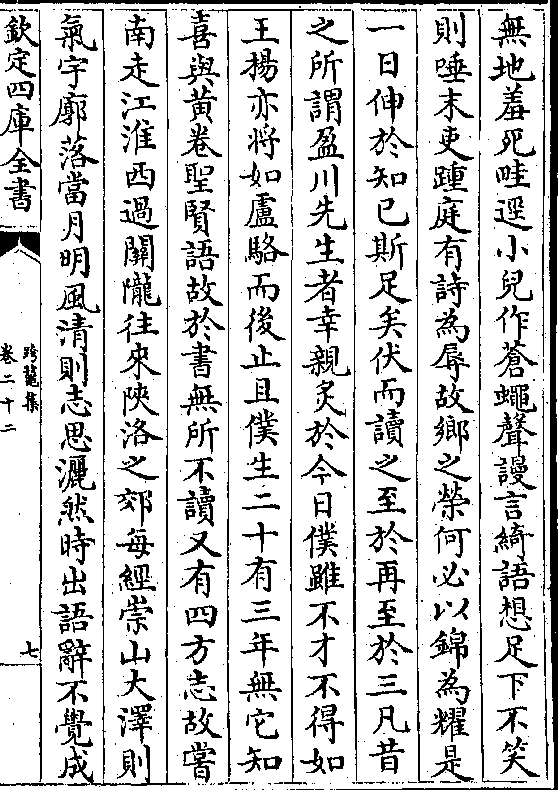 無地羞死畦逕小兒作蒼蠅聲謾言綺語想足下不笑
則唾末吏踵庭有詩為辱故鄉之榮何必以錦為耀是
一日伸於知已斯足矣伏而讀之至於再至於三凡昔
之所謂盈川先生者幸親炙於今日僕雖不才不得如
王揚亦将如盧駱而後止且僕生二十有三年無它知
喜與黄卷聖賢語故於書無所不讀又有四方志故嘗
南走江淮西過關隴往來陜洛之郊每經崇山大澤則
氣宇廓落當月明風清則志思灑然時出語辭不覺成
欽定四庫全書
跨鼇集
卷二十二
七